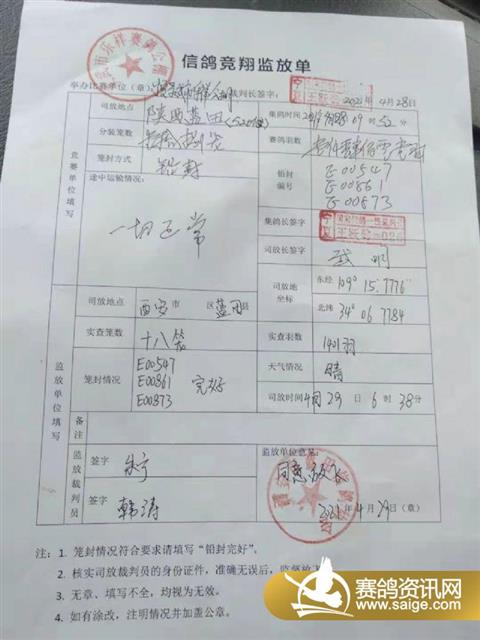 信鸽竞翔监放单
举办比赛单位（章） 裁判长签字： 2021年4月28日
竞赛单位填写
司放地点 陕西蓝田
集鸽时间
分装笼数
赛鸽羽数
笼封方式 铅封
铅封编号 E00547
E00861
E00873
途中运输情况：
一切正常
集鸽长签字
司放长签字 武明
司放地坐标 东经 109° 15.7776"
北纬 34° 06 7784
监放单位填写
司放地点 西安市 区蓝田县
实查笼数 十八笼
实查羽数 1401羽
笼封情况 E00547
E00861 完好
E00873
天气情况 晴
司放时间 4月29日6时38分
备注
监放裁判员
签字
签字 韩涛
监放单位意见：
同意放飞
2021年4月29日（章）
注：1. 笼封情况符合要求请填写“铅封完好”。
2. 核实司放裁判员的身份证件，准确无误后，监督放飞
3. 无章、填写不全，均视为无效。
4. 如有涂改，注明情况并加盖公章。
赛鸽资讯网
www.saige.com